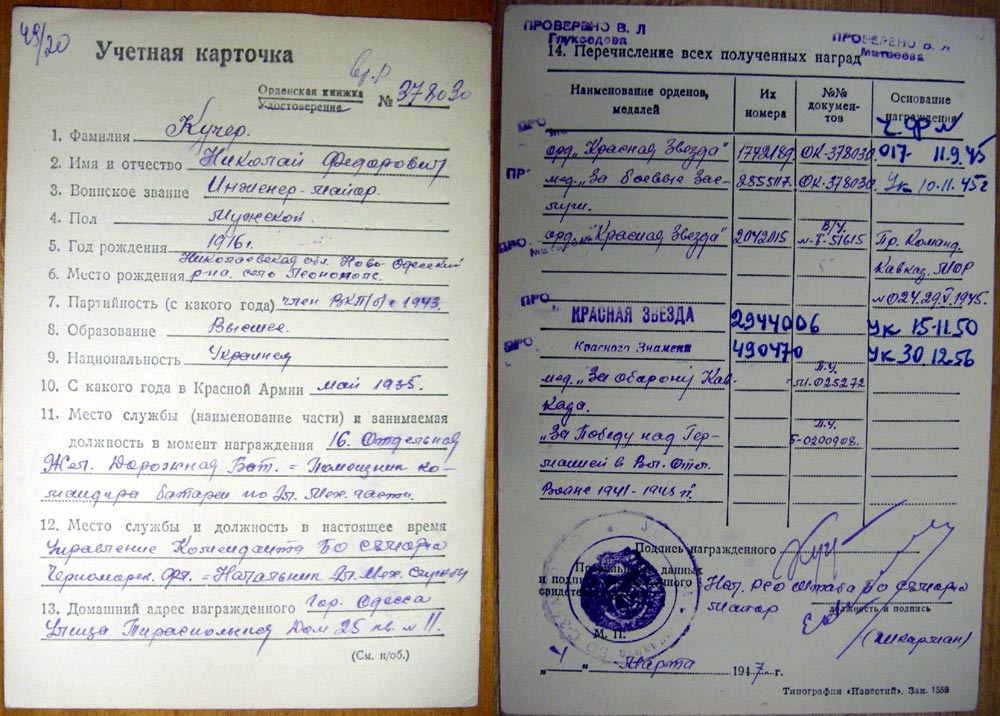 49/20
Учетная карточка
вр. р
Орденская книжка
Удостоверение № 378030
1. Фамилия Кучер.
2. Имя и отчество Николай Федорович
3. Воинское звание Инженер-майор.
4. Пол Мужской.
5. Год рождения 1916 г.
Николаевская обл. Ново-Одесский
6. Место рождения р-на. село
7. Партийность (с какого года) член ВКП(б) с 1943.
8. Образование Высшее.
9. Национальность Украинец
10. С какого года в Красной Армии май 1935.
11. Место службы (наименование части) и занимаемая
должность в момент награждения 16. Отдельная
Жел. Дорожная Бат. = Помощник ко-
мандира батареи по Эл. Мех. части.
12. Место службы и должность в настоящее время
Управление Коменданта БО
Черноморск. фл. = Начальник Эл. Мех. службы
13. Домашний адрес награжденного Гор. Одесса
Улица Тираспольская Дом 25 кв. № 11.
(См. н/об.)
ПРОВЕРЕНО В. Л
Глуходедова
ПРОВЕРЕНО В. Л
Матвеева
14. Перечисление всех полученных наград
Наименование орденов, медалей
Их номера
№№ докумен-тов
Основание награждения
Ч.Ф №
орд. "Красная Звезда" 1742189. ОК-378030. 017- 11.9.45
мед. "За боевые Зас- 2855117. ОК-378030. Ук 10.11.45 г
луги.
орд. "Красная Звезда" 2042015 В/У. № 51615 Пр. Команд.
Кавказ. МОР
№ 024. 29.V.1945.
КРАСНАЯ ЗВЕЗДА 2944006 Ук 15.11.50
Красного Знамени 490470 Ук 30.12.56
мед. "За оборону Кав- П.У. 025272
каза.
"За Победу над Гер- П.У. 0200908.
манией в Вел. Отеч.
Войне 1941-1945 гг.
Подпись награжденного Куч
Правильность данных
и подпись награжденного
свидетельствую
Нач. штаба БО
майор
должность и подпись
М. П.
"1" Марта 1947 г.
Типография «Известий». Зак. 1559